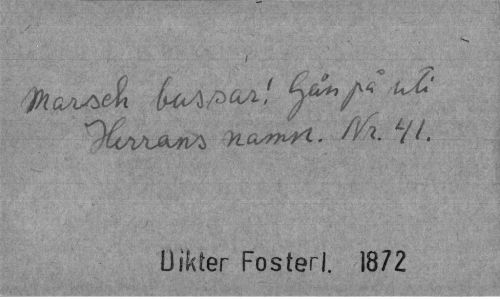 Marsch bussar! Gån på uti
Herrans namn. Nr. 41.
Dikter Fosterl. 1872